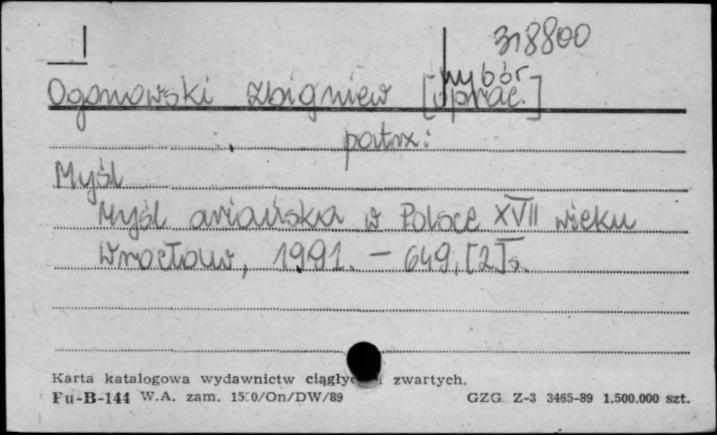 318800
Ogonowski Zbigniew [wybór
oprac.]
patrz:
Myśl
Myśl ariańska w Polsce XVII wieku
Wrocław, 1991. - 649, [2] s.
Karta katalogowa wydawnictw ciągłych i zwartych.
Pu-B-144 W.A. zam. 1510/On/DW/89 GZG Z-3 3465-89 1.500.000 szt.